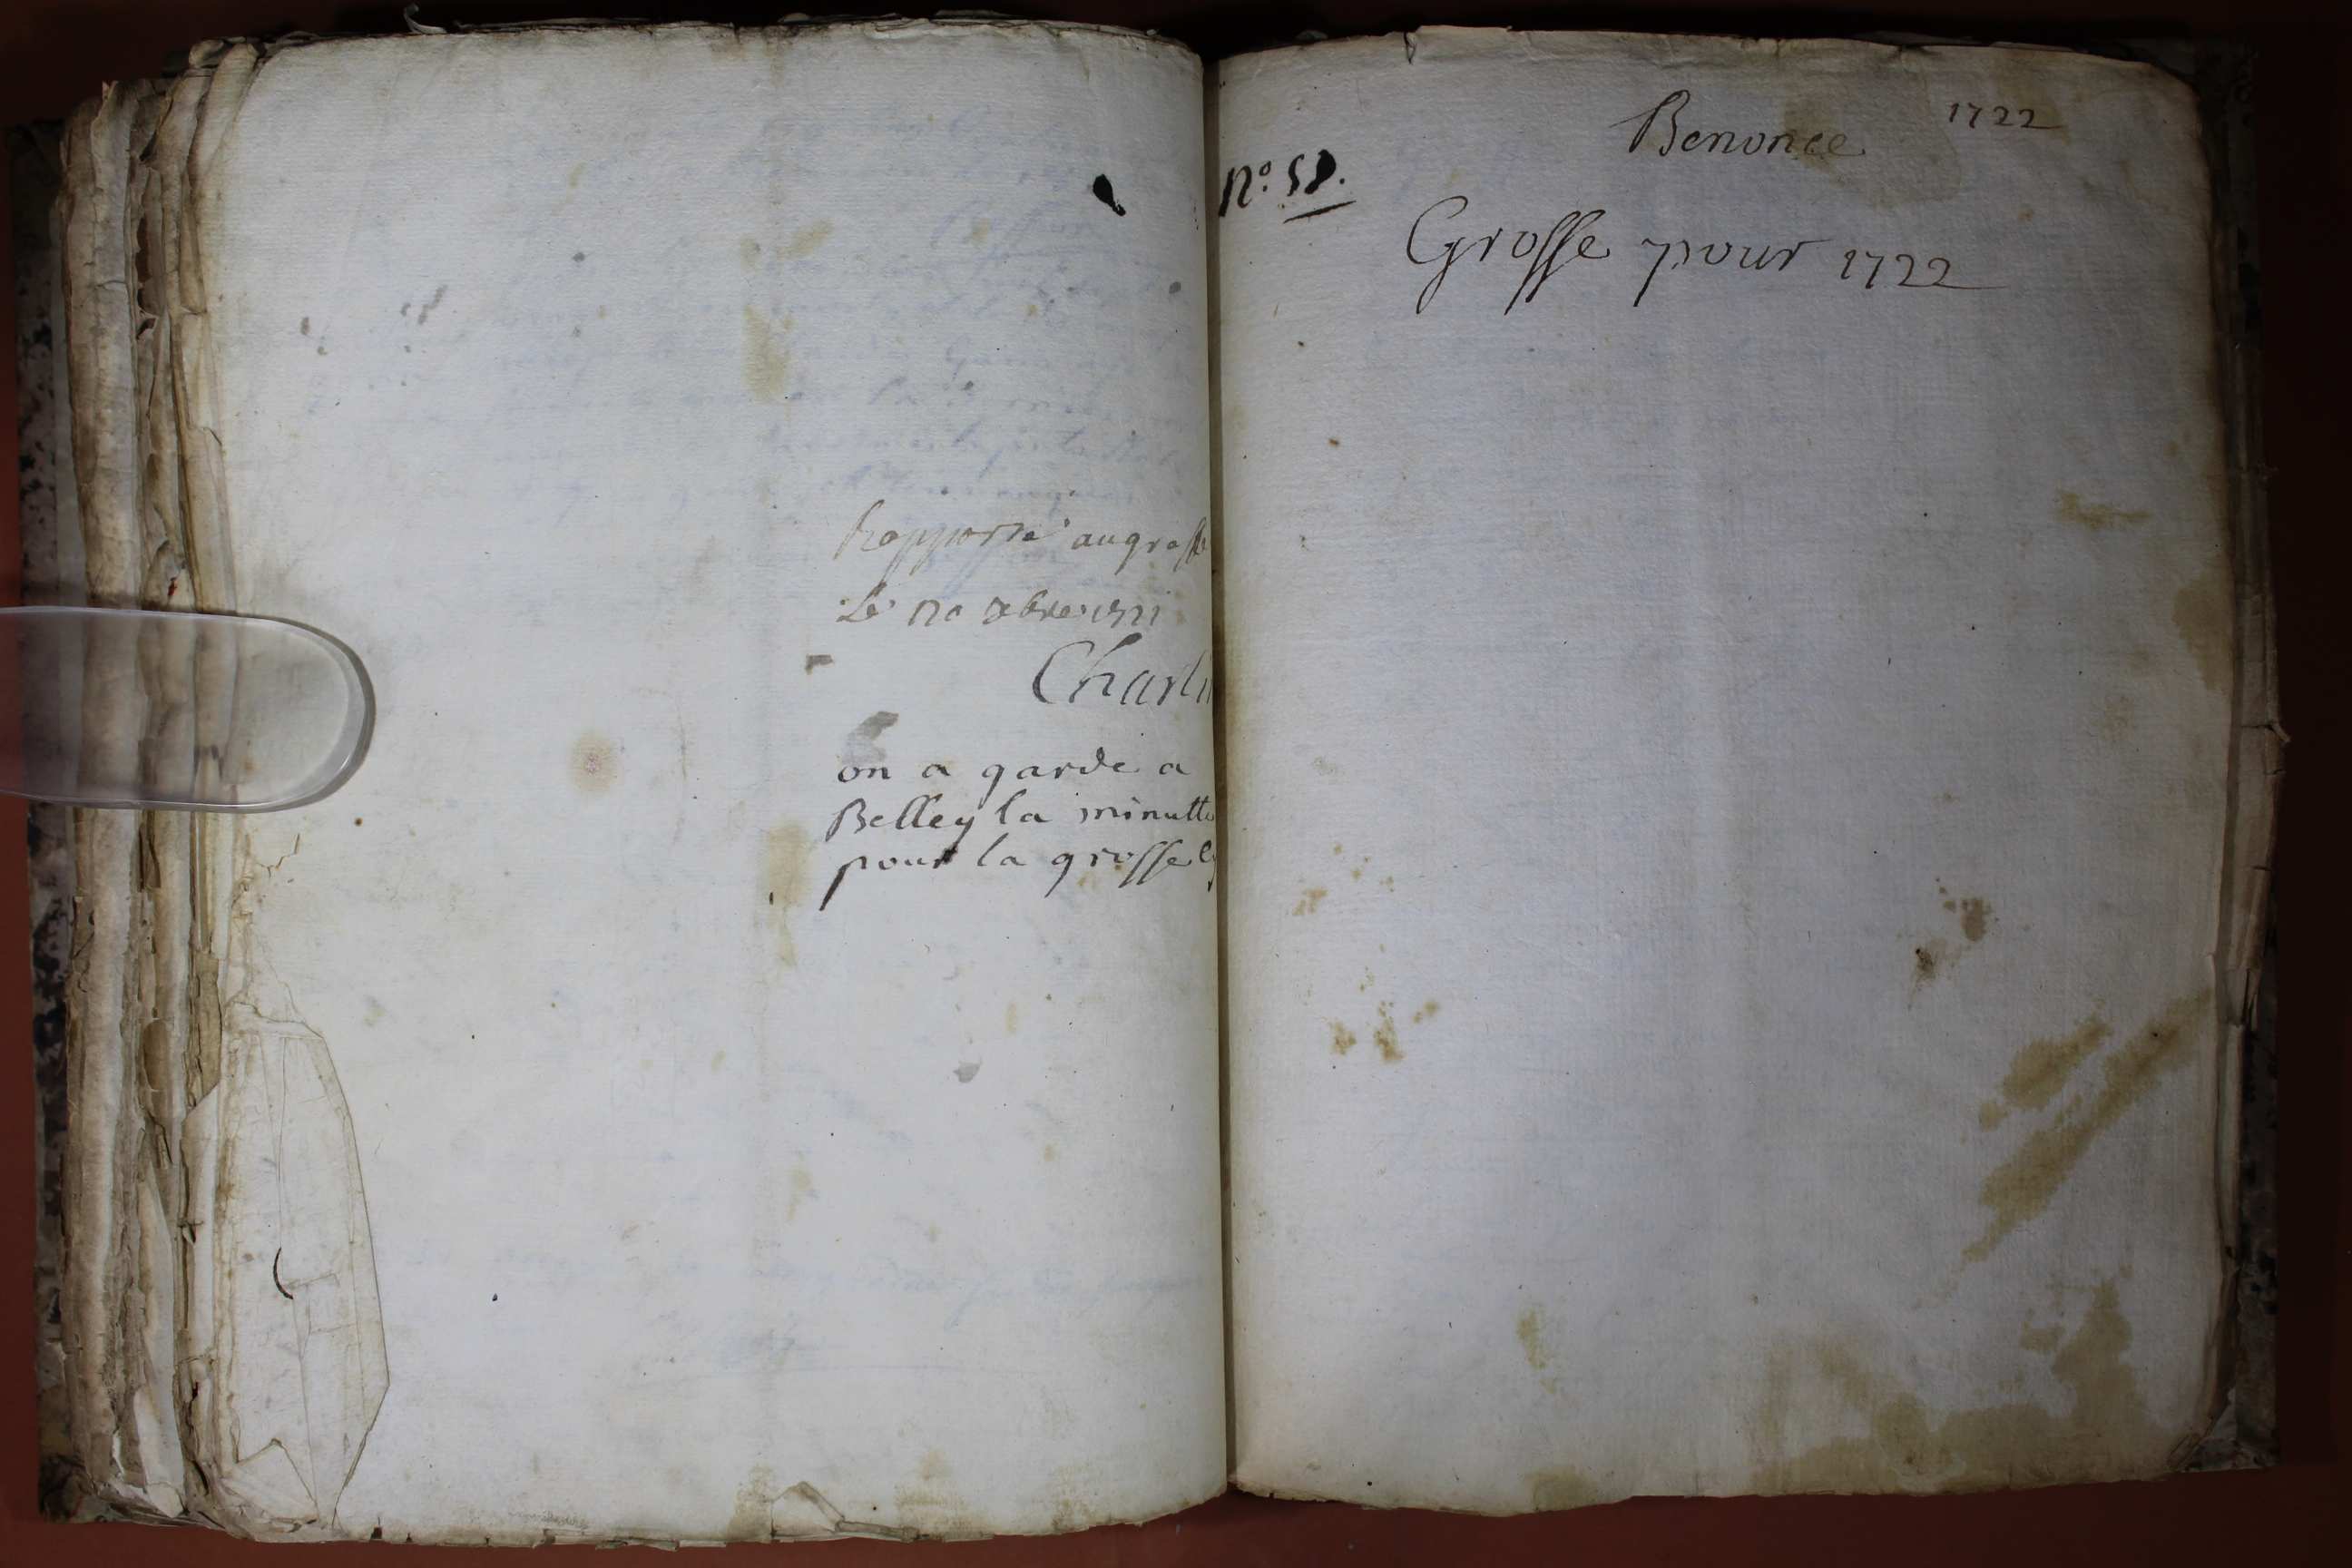 Rapporté au greffe
Le 20 xbre 1721
Charli
on a garde a
Belley la minutte
pour la grosse
Benonce 1722
N.º 58.
Grosse pour 1722